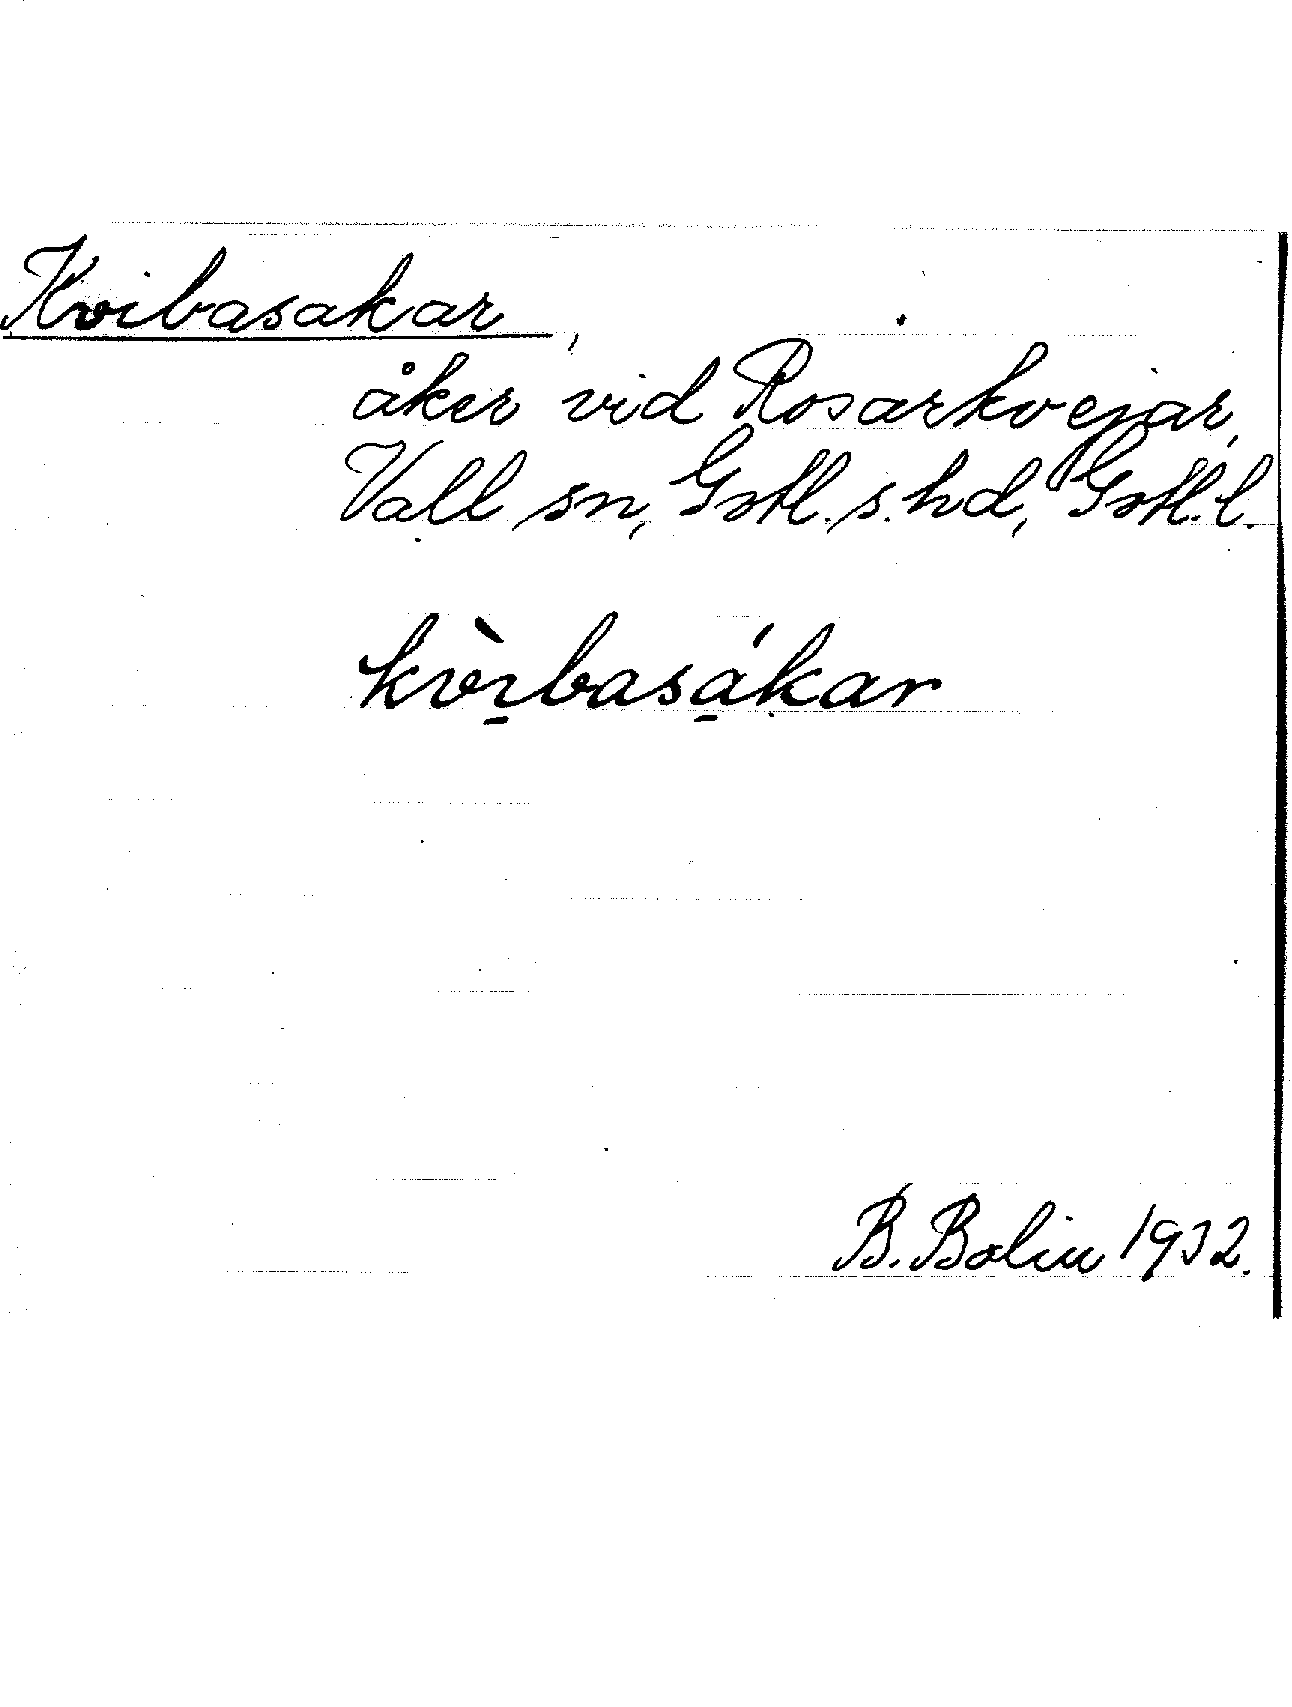 Kvibasakar,
åker vid Rosarkvejar,
Vall sn, Gotl. s. hd, Gotl. l.
kvı̠̀basá̠kar
B. Bolin 1932.